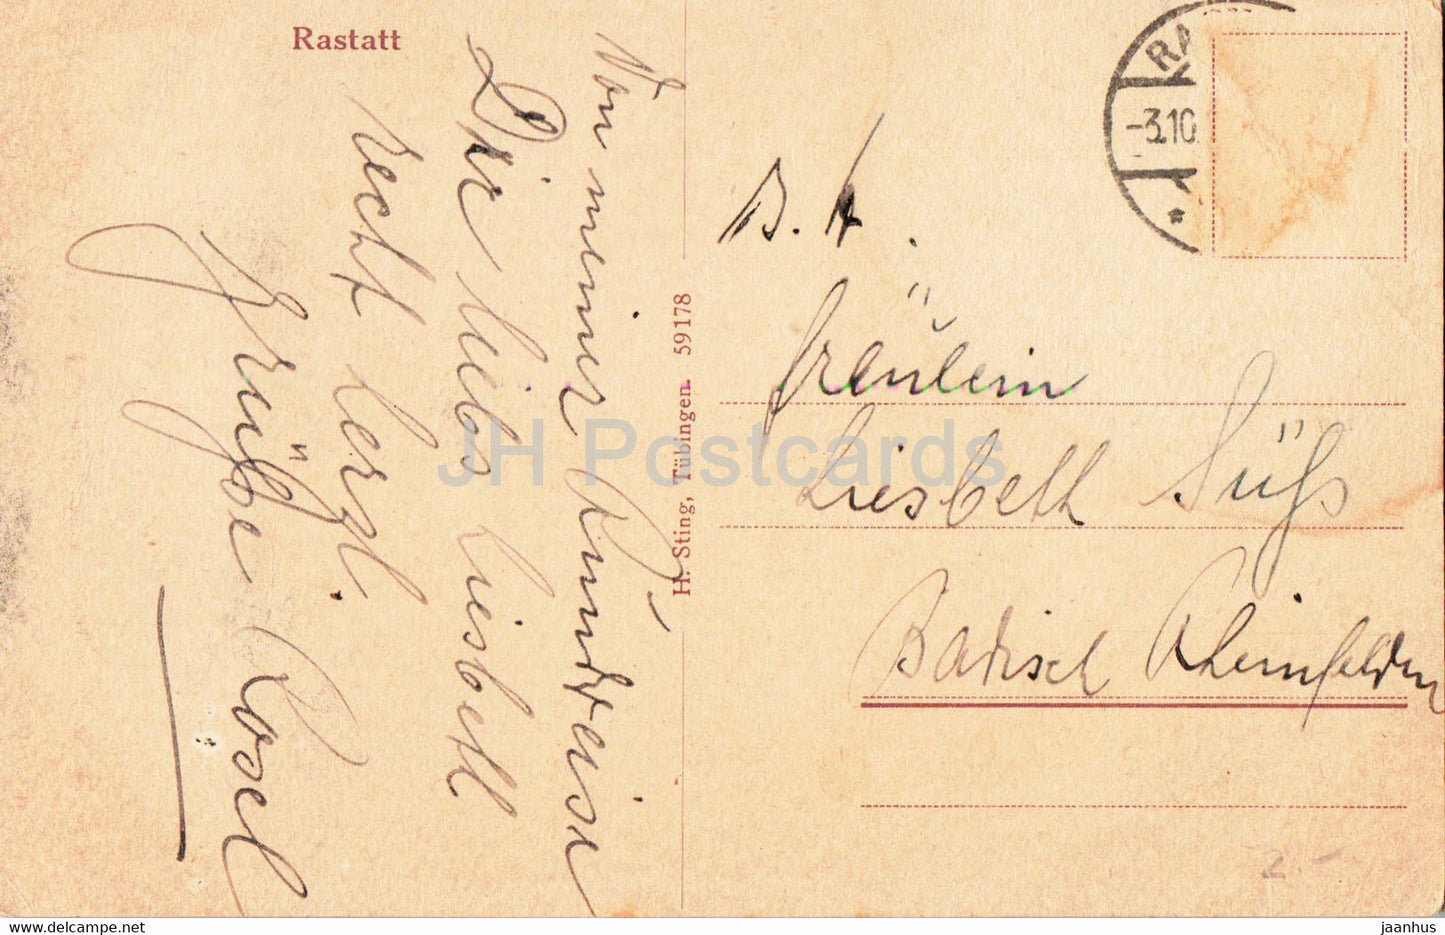 Rastatt
Von meiner Rundreise
Dir liebe Liesbeth
recht herzl.
Grüße Rosel
H. Sting, Tübingen. 59178
RA
-3.10
B. H.
Fräulein
Liesbeth Süß
Badisch Rheinfelden
2.-
JH Postcards
www.delcampe.net
jaanhus